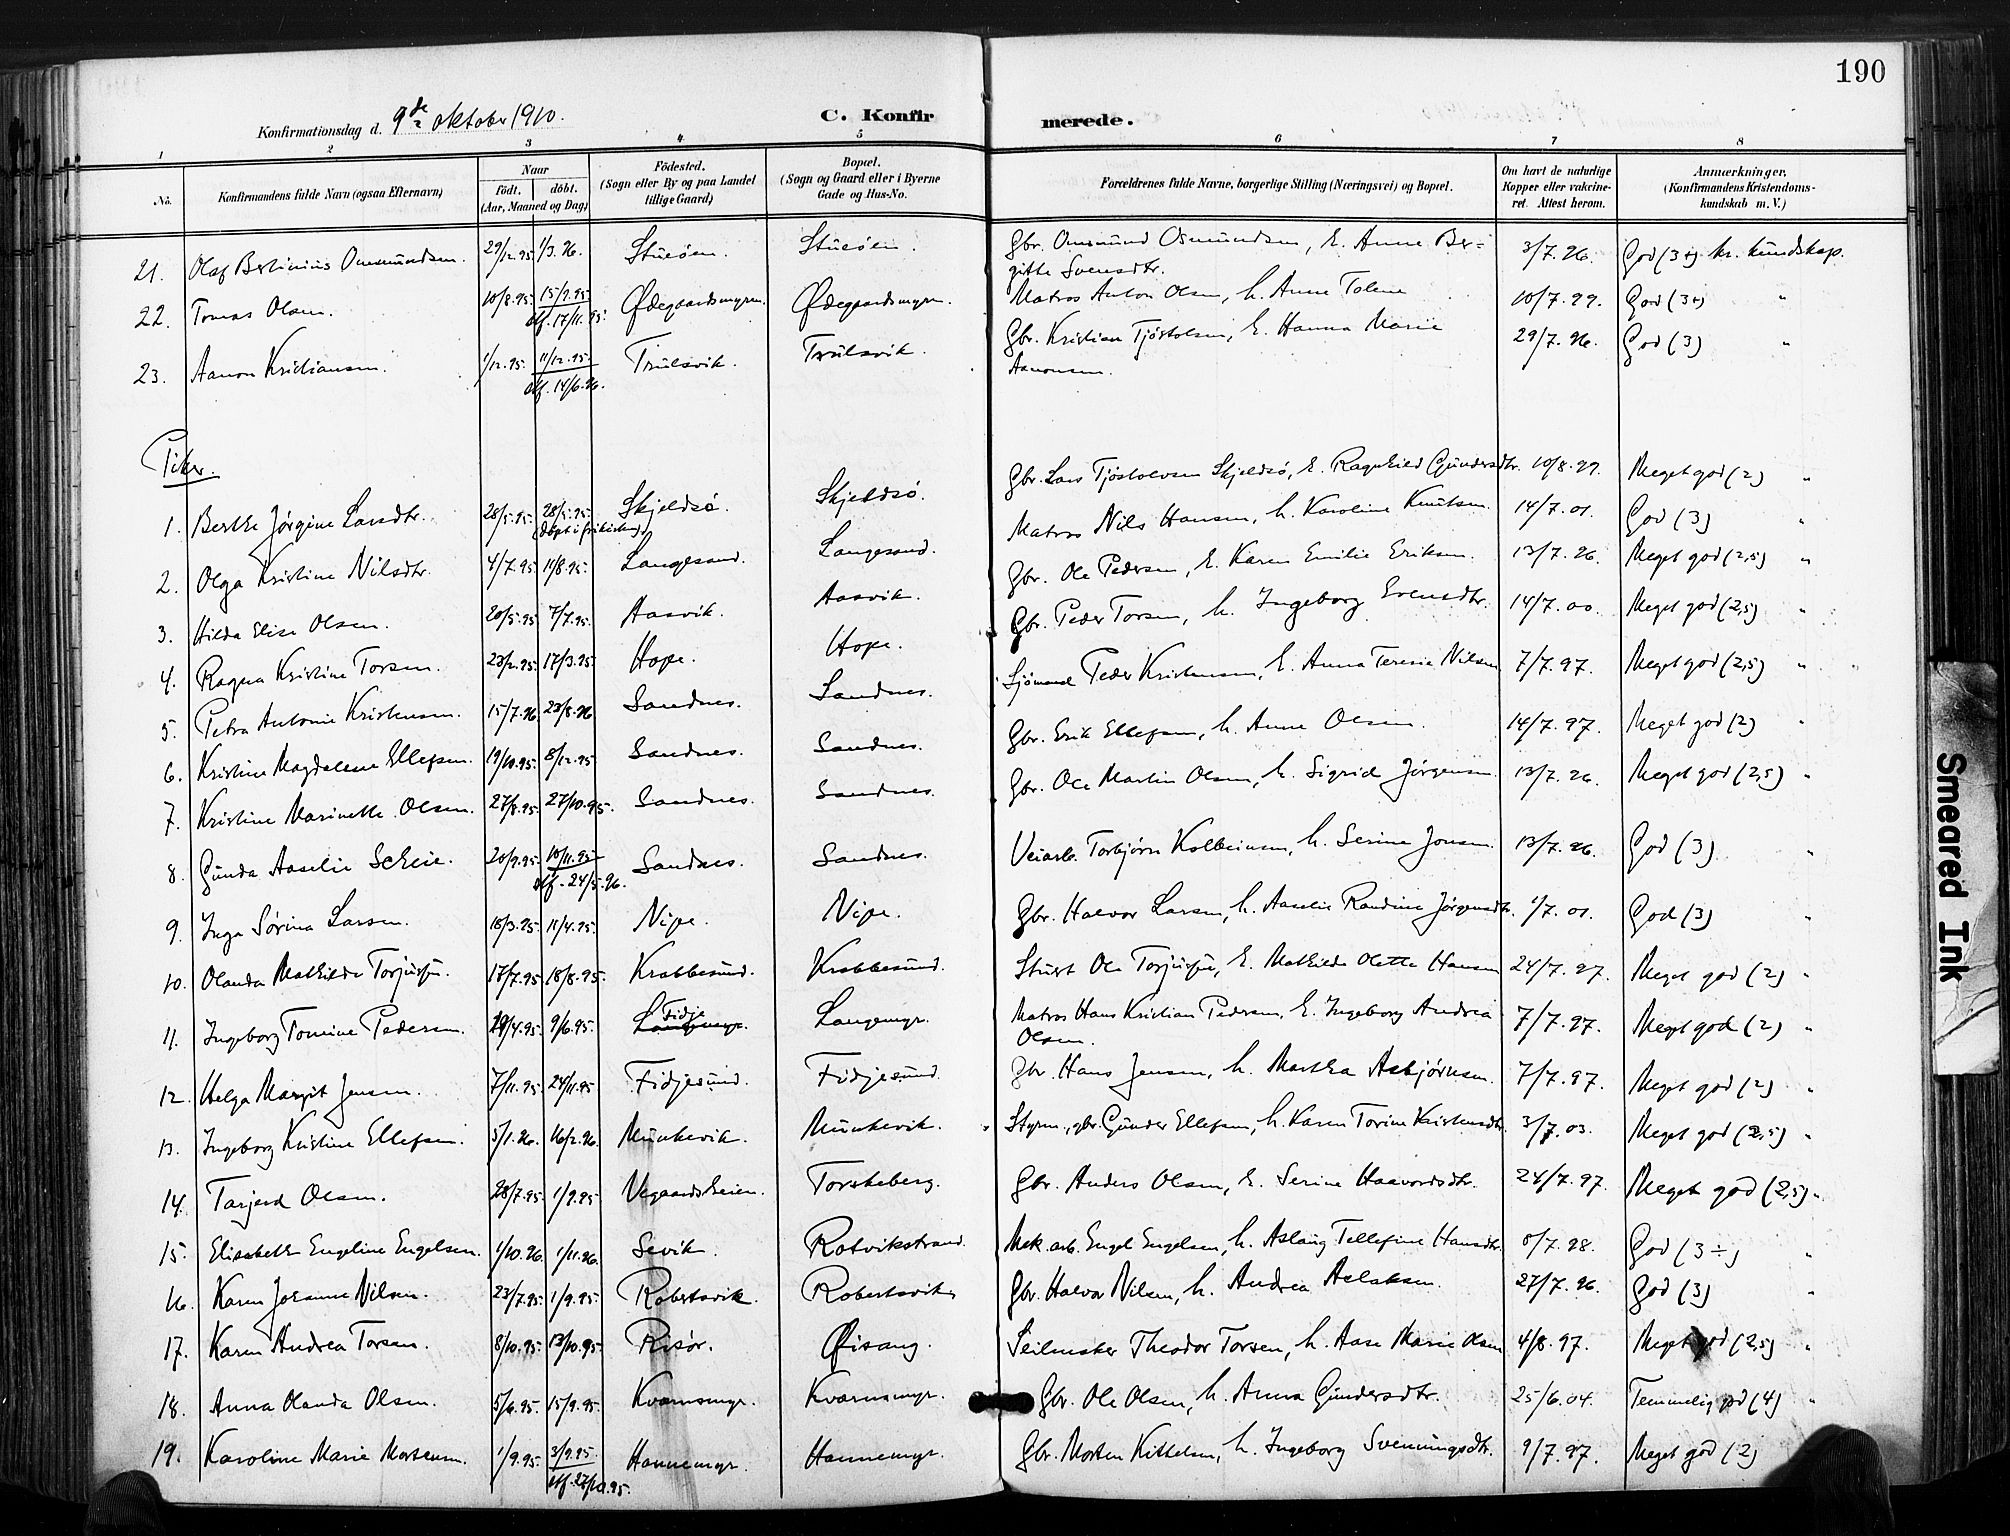 190
Konfirmationsdag d. 9de oktober 1910.
C. Konfirmerede.
1 2 3 4 5 6 7 8
No. Konfirmandens fulde Navn (ogsaa Efternavn) Naar Födt, döbt. (Aar, Maaned og Dag) Födested. (Sogn eller By og paa Landet tillige Gaard) Bopæl. (Sogn og Gaard eller i Byerne Gade og Hus-No. Forældrenes fulde Navne, borgerlige Stilling (Næringsvei) og Bopæl. Om havt de naturlige Kopper eller vakcineret. Attest herom. Anmærkninger, (Konfirmandens Kristendomskundskab m. V.)
21. Olaf Bertinius Omsmundsen. 29/12.95 1/3.96. Stueöen. Stueöen. Gbr. Omsmund Osmundsen, h. Anne Bergitte Svensdtr. 3/7.96. God (3+) kr. kundskap.
22. Tomas Olsen. 10/8.95 15/9.95 stf. 17/11.95. Ødegaardsmyren. Ødegaardsmyren. Matros Anton Olsen, h. Anne Tolene 10/7.99. God (3+) "
23. Aanon Kristiansen. 1/12.95. 11/12.95. stf. 14/6.96. Trulsvik. Trulsvik. Gbr. Kristian Tjöstolsen, h. Hanna Marie Aanonsen. 29/7.96. God (3) "
Piker.
1. Berthe Jørgine Larsdtr. 28/5.95. 28/5.95. (døpt i frikirken) Skjeldsö. Skjeldsö. Gbr. Lars Tjöstolvsen Skjeldsö, h. Ragnhild Gundersdtr. 10/8.99. Meget god (2) "
2. Olga Kristine Nilsdtr. 4/7.95 11/8.95. Langesand. Langesand. Matros Nils Hansen, h. Karoline Knutsen. 14/7.01. God (3) "
3. Hilda Elise Olsen. 20/5.95 7/7.95. Aasvik. Aasvik. Gbr. Ole Pedersen, h. Karen Emilie Eriksen. 13/7.96. Meget god (2,5) "
4. Ragna Kristine Torsen. 23/2.95. 17/3.95. Hope. Hope. Gbr. Peder Torsen, h. Ingeborg Evensdtr. 14/7.00. Meget god (2,5) "
5. Petra Antonie Kristensen. 15/7.96 23/8.96 Sandnes. Sandnes. Sjömand Peder Kristensen, h. Anna Teresie Nilsen 7/7.97. Meget god (2,5) "
6. Kristine Magdalene Ellefsen. 19/10.95. 8/12.95 Sandnes. Sandnes. Gbr. Erik Ellefsen, h. Anne Olsen. 14/7.97. Meget god (2) "
7. Kristine Marinette Olsen. 27/8.95. 27/10.95. Sandnes. Sandnes. Gbr. Ole Martin Olsen, h. Sigrid Jörgensen 13/7.96. Meget god (2,5) "
8. Gunda Aaselie Scheie. 20/9.95. 10/11.95 stf. 24/5.96. Sandnes. Sandnes. Veiarb. Torbjörn Kolbeinsen, h. Serine Jonsen. 13/7.96. God (3) "
9. Inga Sørina Larsen. 18/3.95 11/4.95. Nipe. Nipe. Gbr. Halvor Larsen, h. Aaselie Randine Jörgensdtr. 1/7.01. God (3) "
10. Olanda Mathilde Torjusen. 17/7.95 18/8.95. Krabbesund. Krabbesund. Stuert Ole Torjusen, h. Mathilde Olette Hansen 24/7.97. Meget god (2) "
11. Ingeborg Tomine Pedersen. 29/4.95. 9/6.95. Langemyr. Fidje Langemyr. Matros Hans Kristian Pedersen, h. Ingeborg Andrea Olsen. 7/7.97. Meget god (2) "
12. Helga Margit Jensen. 7/11.95. 24/11.95 Fidjesund. Fidjesund. Gbr. Hans Jensen, h. Martha Asbjörnsen. 7/7.97. Meget god (2) "
13. Ingeborg Kristine Ellefsen. 5/1.96. 16/2.96. Munkevik. Munkevik. Styrm., gbr. Gunder Ellefsen, h. Karen Torine Kristensdtr. 3/7.03. Meget god (2,5) "
14. Tarjerd Olsen. 28/7.95. 1/9.95 Vegaardsheien. Torskeberg. Gbr. Anders Olsen, h. Serine Haavordsdtr. 24/7.97. Meget god (2,5) "
15. Elisabeth Engeline Engelsen. 1/10.96. 1/11.96. Sevik. Rotvikstrand. Mek. arb. Engel Engelsen, h. Aslaug Tellefine Hansdtr. 8/7.98. God (3÷) "
16. Karen Johanne Nilsen. 23/7.95. 1/9.95. Robertsvik. Robertsvik Gbr. Halvor Nilsen, h. Andrea Aslaksen. 27/7.96. God (3) "
17. Karen Andrea Torsen. 8/10.95. 13/10.95 Risör. Øisang. Seilmaker Theodor Torsen, h. Aase Marie Olsen 4/8.97. Meget god (2,5) "
18. Anna Olanda Olsen. 5/6.95. 15/9.95. Kvarnsmyr. Kvarnsmyr. Gbr. Ole Olsen, h. Anna Gundersdtr. 25/6.04. Temmelig god (4) "
19. Karoline Marie Mortensen. 1/9.95. 3/9.95 stf. 27/10.95. Hannemyr. Hannemyr. Gbr. Morten Kittelsen, h. Ingeborg Svenningsdtr. 9/7.97. Meget god (2)
Smeared Ink